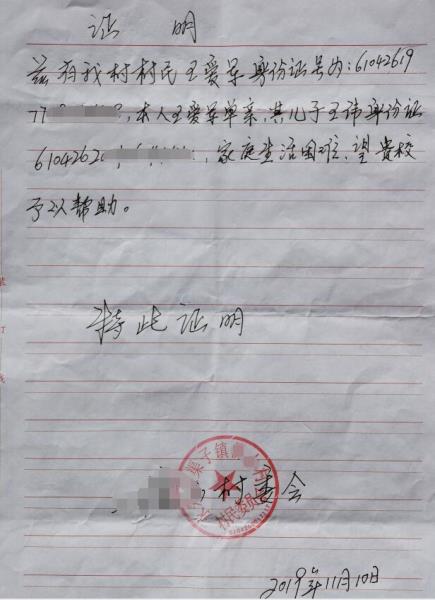 证 明
兹有我村村民王爱军身份证号为:6104261977
,本人王爱军单亲,其儿子王讳身份证
6104262,家庭生活困难,望贵校
予以帮助。
特此证明
栗子镇
村民委员
村委会
2019年11月10日